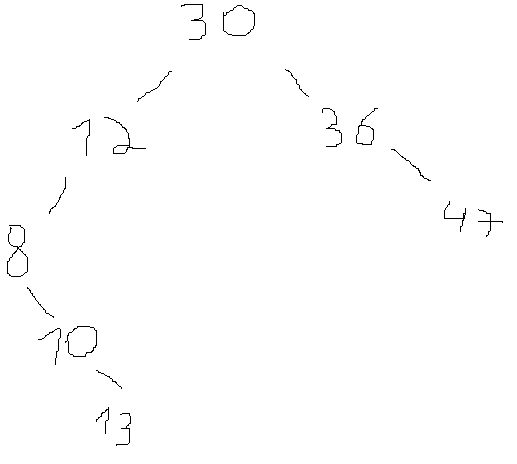 30
12 36
47
8
10
13